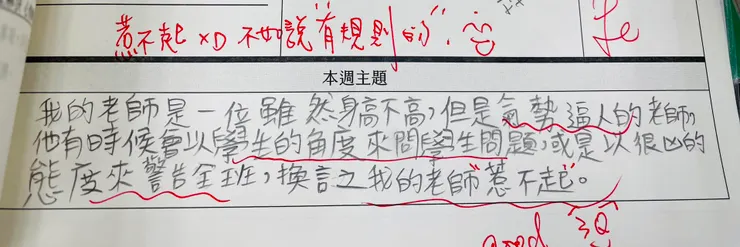 惹不起 XD 不如說"有規則的".
本週主題
我的老師是一位雖然身高不高,但是氣勢逼人的老師,
他有時候會以學生的角度來問學生問題,或是以很凶的
態度來警告全班,換言之我的老師"惹不起"。
good